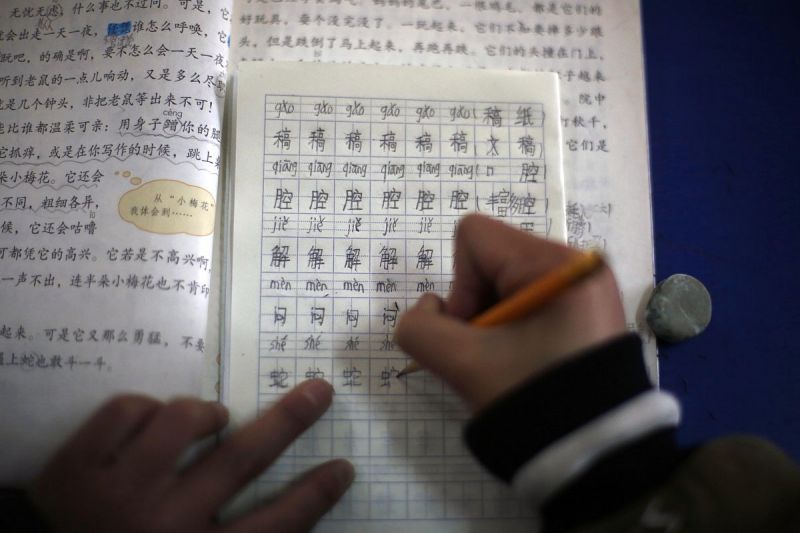 无忧无虑,什么事也不过问。可是,它
会出走一天一夜,任凭谁怎么呼唤,它
玩吧,的确是啊,要不怎么会一天一夜
听到老鼠的一点儿响动,又是多么尽
是几个钟头,非把老鼠等出来不可!
cèng
比谁都温柔可亲:用身子蹭你的腿
它抓痒,或是在你写作的时候,跳上
朵小梅花。它还会
不同,粗细各异,
lu
候,它还会咕噜
可都凭它的高兴。它若是不高兴啊,
一声不出,连半朵小梅花也不肯印
起来。可是它又那么勇猛,不要
遇上蛇也敢斗一斗。
从“小梅花”
我体会到……
好玩具,耍个没完没了。一玩起来,它们不知要摔多少跟
头,但是跌倒了马上起来,再跑再跌。它们的头撞在门上,
子越来
院中
打秋千,
它们是
gǎo gǎo gǎo gǎo gǎo gǎo(稿纸)
稿 稿 稿 稿 稿 稿 文稿)
qiāng qiāng qiāng qiāng qiāng qiāng( 口腔
腔 腔 腔 腔 腔 腔 腔)
jiě jiě jiě jiě jiě
解 解 解 解 解
mèn mèn mèn mèn mèn
闷 闷 闷 闷
shé shé shé shé
蛇 蛇 蛇 蛇